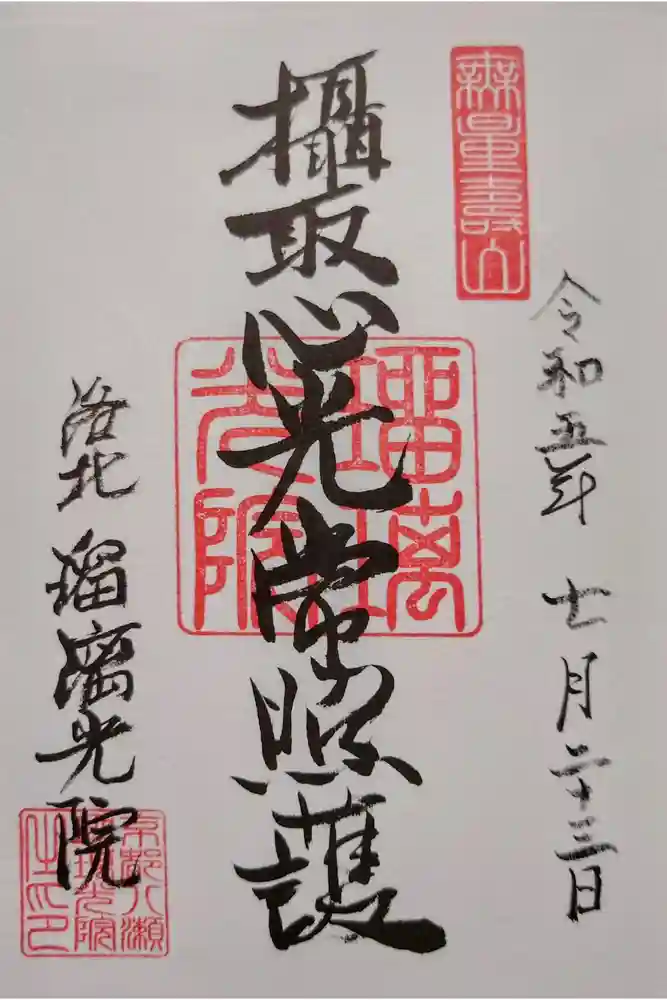 無量壽山
令和五年 十一月二十三日
攝取心光常照護
瑠璃
光院
洛北 瑠璃光院
京都八瀬
瑠璃光院